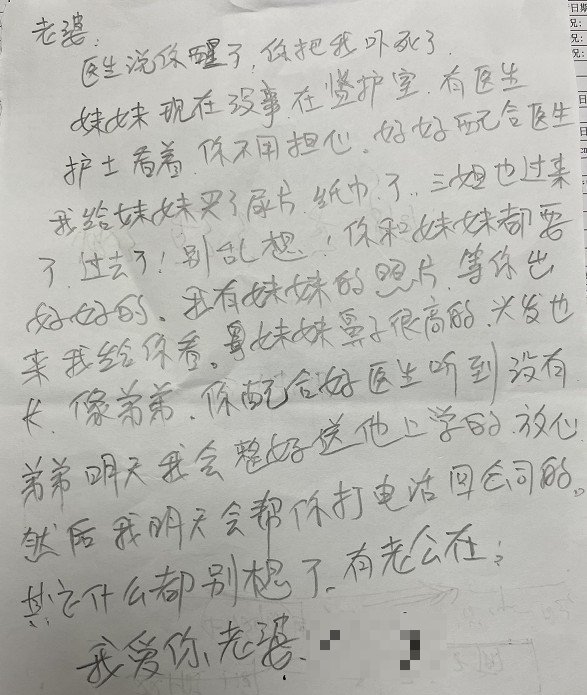 老婆:
医生说你醒了,你把我吓死了.
妹妹现在没事.在监护室.有医生
护士看着.你不用担心.好好配合医生
我给妹妹买了尿片.纸巾了.三姐也过来
了.过去了!别乱想!你和妹妹都要
好好的。我有妹妹的照片.等你出
来我给你看。妹妹鼻子很高的.头发也
长.像弟弟.你配合好医生听到没有.
弟弟明天我会整好送他上学的.放心
然后我明天会帮你打电话回公司的。
其它什么都别想了.有老公在;
我爱你、老婆.
日期
况:
况:
况: